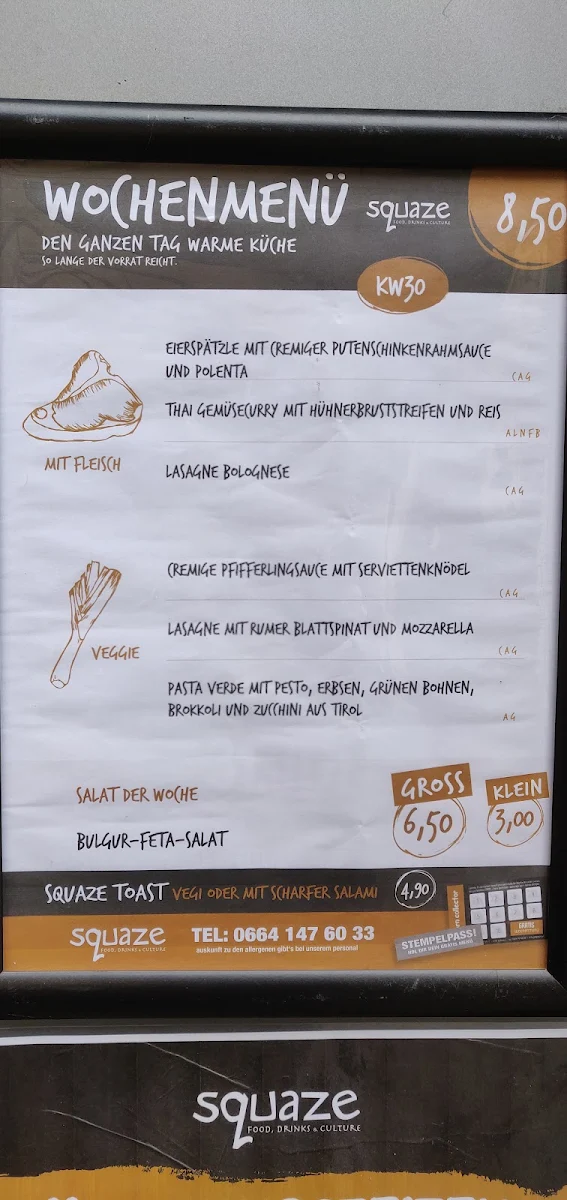 WOCHENMENÜ
squaze
FOOD, DRINKS & CULTURE
8,50
DEN GANZEN TAG WARME KÜCHE
SO LANGE DER VORRAT REICHT.
KW30
EIERSPÄTZLE MIT CREMIGER PUTENSCHINKENRAHMSAUCE
UND POLENTA
CAG
THAI GEMÜSECURRY MIT HÜHNERBRUSTSTREIFEN UND REIS
ALNFB
MIT FLEISCH
LASAGNE BOLOGNESE
CAG
CREMIGE PFIFFERLINGSAUCE MIT SERVIETTENKNÖDEL
CAG
LASAGNE MIT RUMER BLATTSPINAT UND MOZZARELLA
CAG
VEGGIE
PASTA VERDE MIT PESTO, ERBSEN, GRÜNEN BOHNEN,
BROKKOLI UND ZUCCHINI AUS TIROL
AG
SALAT DER WOCHE
GROSS
KLEIN
BULGUR-FETA-SALAT
6,50
3,00
SQUAZE TOAST VEGI ODER MIT SCHARFER SALAMI
4,90
squaze
FOOD, DRINKS & CULTURE
TEL: 0664 147 60 33
auskunft zu den allergenen gibt's bei unserem personal
collector
GRATIS
STEMPELPASS!
HOL DIR DEIN GRATIS MENÜ
squaze
FOOD, DRINKS & CULTURE